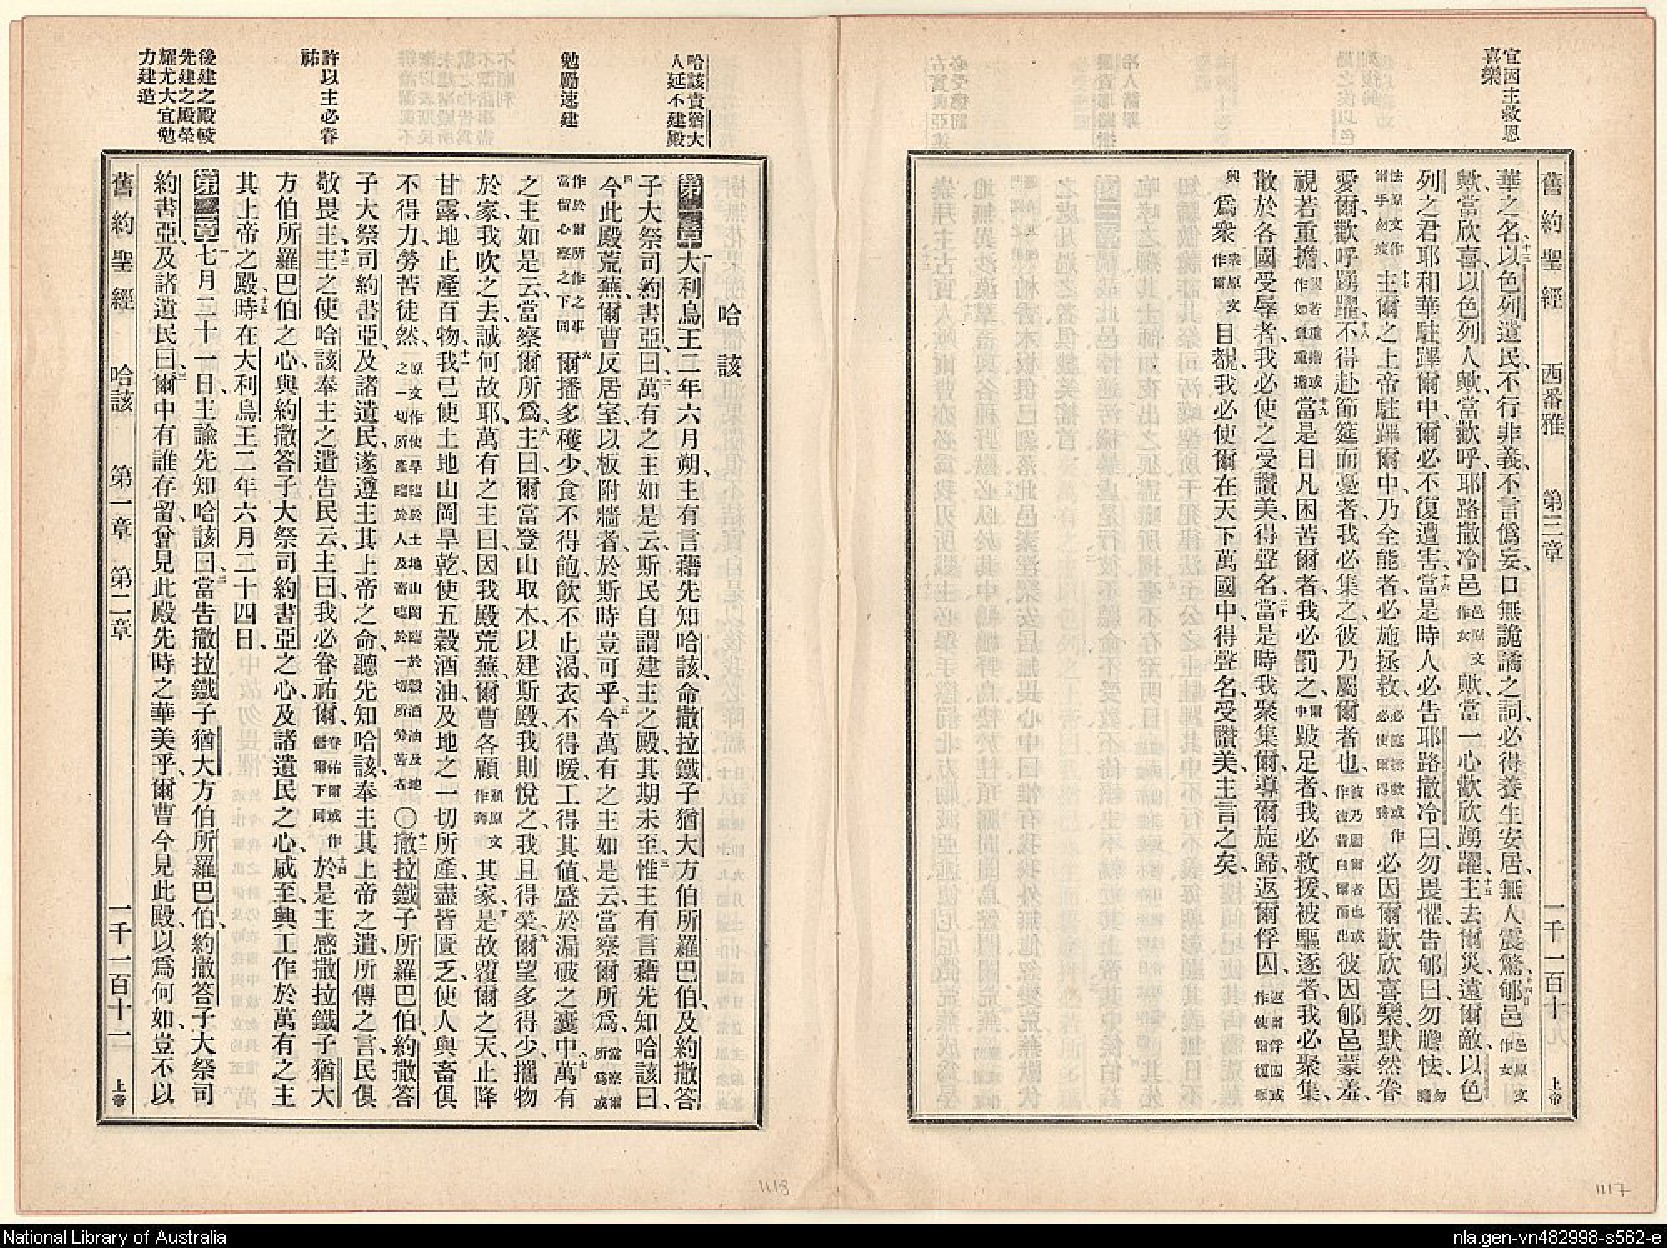 宜因主救恩
喜樂
舊約聖經 西番雅 第三章 一千一百十 上帝
華之名以色列遺民不行非義不言僞妄口無詭譎之詞必得養生安居無人震驚郇邑
歟當欣喜以色列人歟當歡呼耶路撒冷邑邑原文作女歟當一心歡欣踴躍主去爾災遠爾敵以色
列之君耶和華駐蹕爾中爾必不復遭害當是時人必告耶路撒冷曰勿畏懼告郇曰勿膽怯
主爾之上帝駐蹕爾中乃全能者必施拯救必因爾歡欣喜樂默然眷
愛爾歡呼踴躍不得赴節筵而憂者我必集之彼乃屬爾者也彼因郇邑蒙羞
視若重擔當是日凡困苦爾者我必罰之中爾跛足者我必救援被驅逐者我必聚集
散於各國受辱者我必使之受讚美得聲名當是時我聚集爾導爾旋歸返爾俘囚
爲衆目覩我必使爾在天下萬國中得聲名受讚美主言之矣
哈該責猶大
人延不建殿
勉勵速建
許以主必眷
祐
後建之殿較
先建之殿榮
耀尤大宜勉
力建造
哈該
第一章大利烏王二年六月朔主有言藉先知哈該命撒拉鐵子猶大方伯所羅巴伯及約撒答
子大祭司約書亞曰萬有之主如是云斯民自謂建主之殿其期未至惟主有言藉先知哈該曰
今此殿荒蕪爾曹反居室以板附牆者於斯時豈可乎今萬有之主如是云當察爾所爲當察爾所爲或
作於爾所作之事當留心察之下同爾播多穫少食不得飽飲不止渴衣不得暖工得其值盛於漏破之囊中萬有
之主如是云當察爾所爲主曰爾當登山取木以建斯殿我則悅之我且得榮爾望多得少攜物
於家我吹之去誠何故耶萬有之主曰因我殿荒蕪爾曹各顧顧原文作奔其家是故覆爾之天止降
甘露地止產百物我已使土地山岡旱乾使五穀酒油及地之一切所產盡皆匱乏使人與畜俱
不得力勞苦徒然原文作使旱臨於土地山岡臨於穀酒油及地之一切所產臨於人及畜臨於一切所勞苦者○撒拉鐵子所羅巴伯約撒答
子大祭司約書亞及諸遺民遂遵主其上帝之命聽先知哈該奉主其上帝之遣所傳之言民俱
敬畏主主之使哈該奉主之遣告民云主曰我必眷祐爾眷祐爾或作偕爾下同於是主感撒拉鐵子猶大
方伯所羅巴伯之心與約撒答子大祭司約書亞之心及諸遺民之心咸至興工作於萬有之主
其上帝之殿時在大利烏王二年六月二十四日
第二章七月二十一日主諭先知哈該曰當告撒拉鐵子猶大方伯所羅巴伯約撒答子大祭司
約書亞及諸遺民曰爾中有誰存留曾見此殿先時之華美乎爾曹今見此殿以爲何如豈不以
舊約聖經 哈該 第一章 第二章 一千一百十二 上帝
1118
1117
National Library of Australia
nla.gen-vn482998-s562-e